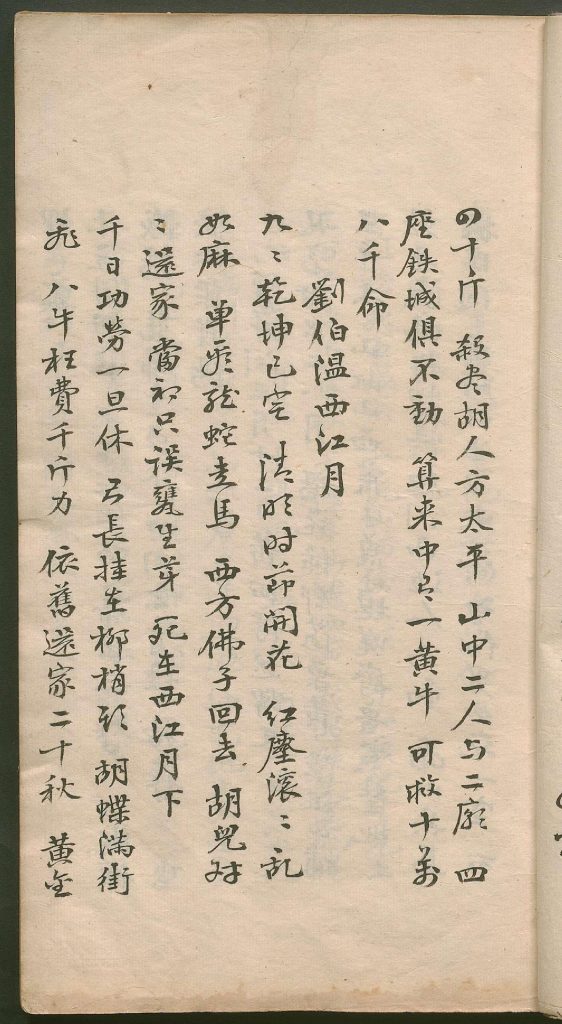 四十斤 殺尽胡人方太平 山中二人与二廟 四
座鉄城俱不動 算来中有一黄牛 可救十萬
八千命
劉伯温西江月
九〻乾坤已定 清明时节開花 红塵滚〻乱
如麻 单看龍蛇走馬 西方佛子回去 胡兒对
〻還家 當初只误 生芽 死在西江月下
千日功勞一旦休 弓長挂在柳梢头 胡蝶滿街
飛 八牛枉費千斤力 依舊還家二十秋 黄金